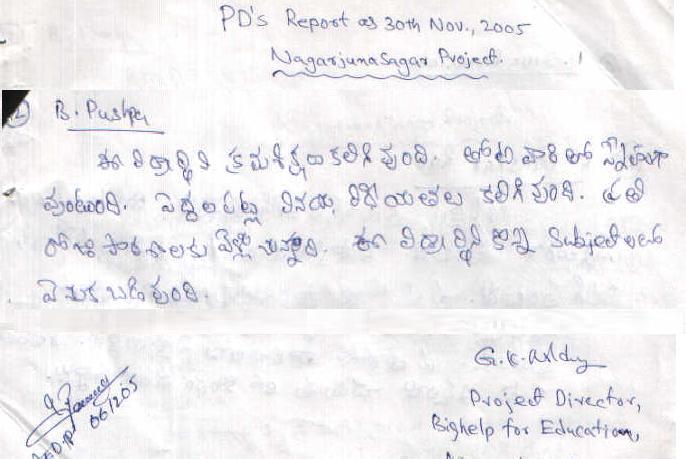 PD's Report as 30th Nov., 2005
Nagarjunasagar Project.
B. Pushpa
ఈ విద్యార్థిని క్రమశిక్షణ కలిగి వుంది. తోటి వారితో స్నేహంగా
వుంటుంది. పెద్దల పట్ల వినయ, విధేయతలు కలిగి వుంది. ప్రతి
రోజు పాఠశాలకు వెళ్లు చున్నది. ఈ విద్యార్థిని కొన్ని Subject లలో
వెనుక బడి వుంది.
G.K.
Project Director,
Bighelp for Education,
06/12/05